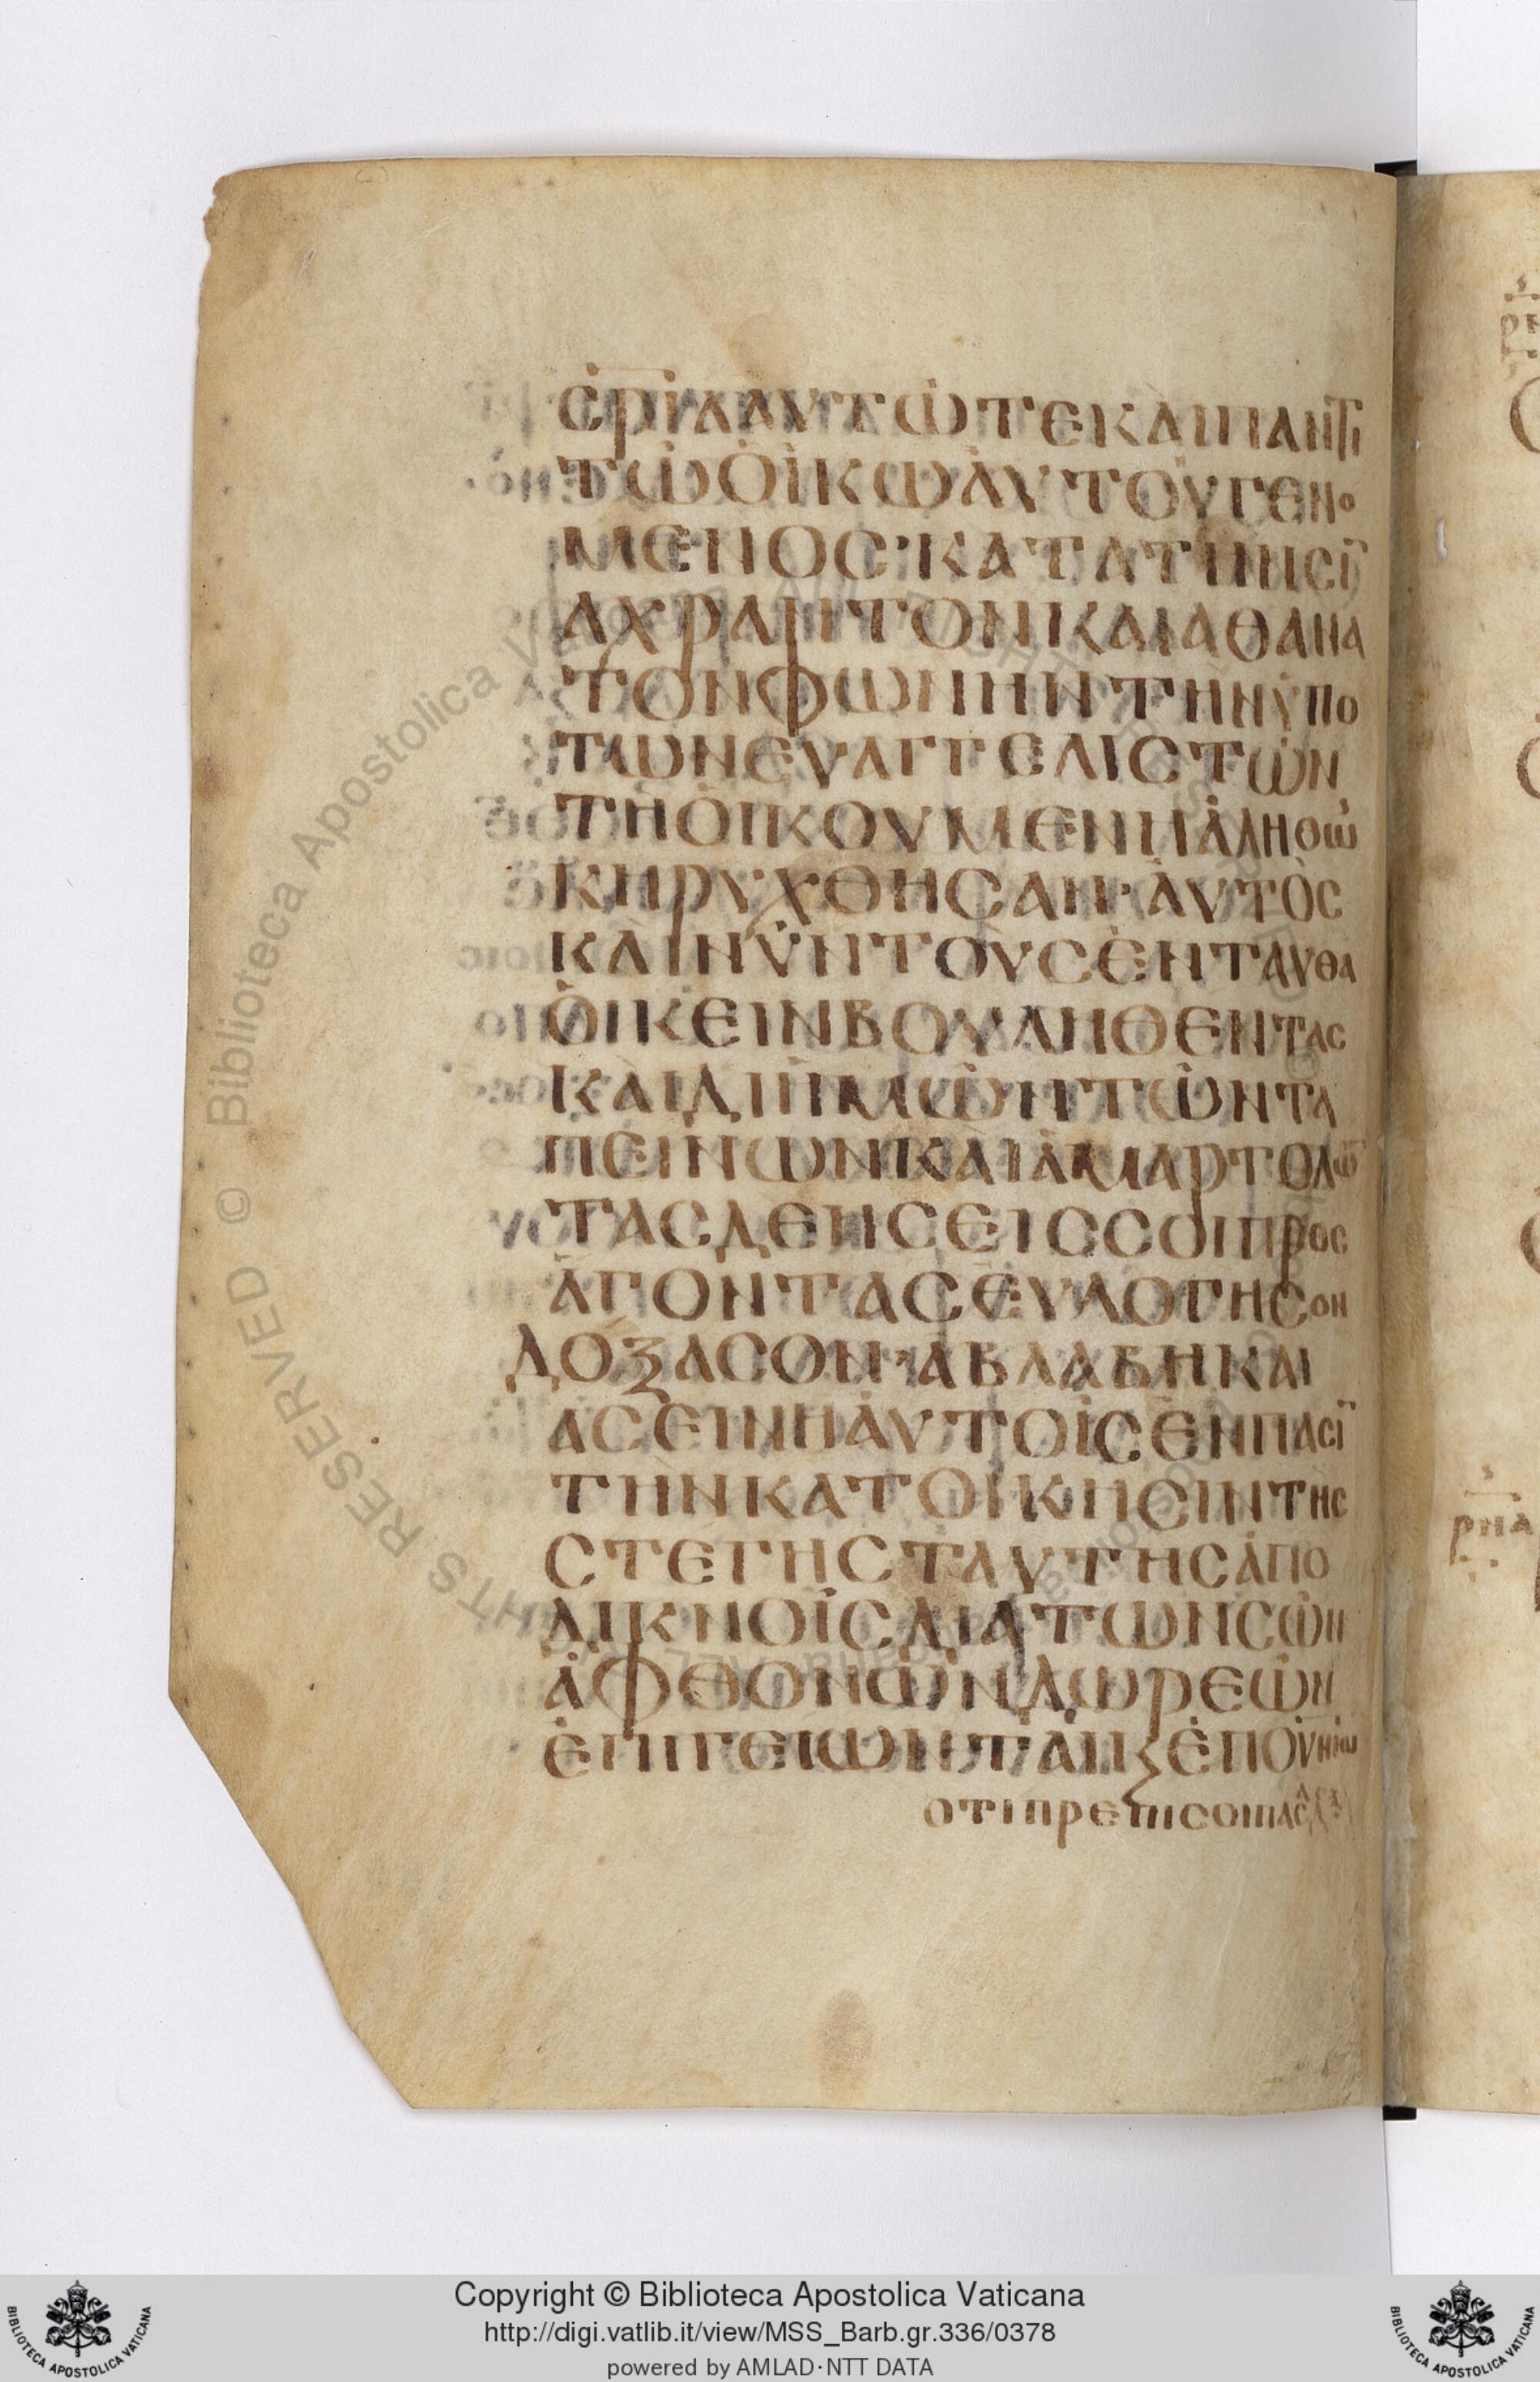 ΣΡΙΑ ΑΥΤΩ ΤΕ ΚΑΙ ΠΑΝΤΙ
ΤΩ ΟΙΚΩ ΑΥΤΟΥ ΓΕΝΟ
ΜΕΝΟΣ· ΚΑΤΑ ΤΗΝ ΣΗ
ΑΧΡΑΝΤΟΝ ΚΑΙ ΑΘΑΝΑ
ΤΟΝ ΦΩΝΗΝ ΤΗΝ ΥΠΟ
ΤΩΝ ΕΥΑΓΓΕΛΙΣΤΩΝ
ΤΗ ΟΙΚΟΥΜΕΝΗ ΑΛΗΘΩ
ΚΗΡΥΧΘΗΣΑΝ· ΑΥΤΟΣ
ΚΑΙ ΝΥΝ ΤΟΥΣ ΕΝΤΑΥΘΑ
ΟΙΚΕΙΝ ΒΟΥΛΗΘΕΝΤΑΣ
ΚΑΙ ΔΙ ΗΜΩΝ ΤΩΝ ΤΑ
ΠΕΙΝΩΝ ΚΑΙ ΑΜΑΡΤΟΛΩ
ΤΑΣ ΔΕΗΣΕΙΣ ΣΟΙ ΠΡΟΣ
ΑΓΟΝΤΑΣ ΕΥΛΟΓΗΣΟΝ
ΔΟΞΑΣΟΝ· ΑΒΛΑΒΗ ΚΑΙ
ΑΣΕΙΝΗ ΑΥΤΟΙΣ ΕΝ ΠΑΣΙ
ΤΗΝ ΚΑΤΟΙΚΗΣΙΝ ΤΗΣ
ΣΤΕΓΗΣ ΤΑΥΤΗΣ ΑΠΟ
ΔΙΚΝΟΙΣ ΔΙΑ ΤΩΝ ΣΩΝ
ΑΦΘΟΝΩΝ ΔΩΡΕΩΝ
ΕΠΙΓΕΙΩΝ ΤΑΙ Κ ΕΠΟΥΝΙΩ
ΟΤΙ ΠΡΕΠΙ ΣΟΙ ΠΑΣ
Copyright © Biblioteca Apostolica Vaticana
http://digi.vatlib.it/view/MSS_Barb.gr.336/0378
powered by AMLAD·NTT DATA